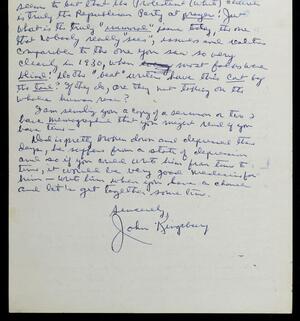 seems to bet that the Protestant (white) church
is truly the Republican Party at prayer! But
what is the truly "immoral" issue today, the one
that "nobody really sees", issues and realities
comparable to the one you saw so very
clearly in 1930, when most folks were
blind. Do the "beat" writers have this cat by
the tail? If they do, are they not looking on the
whole human race?
I am sending you a copy of a sermon or two I
have mimeographed that you might read if you
have time—
Dad is pretty broken down and depressed these
days, he suffers from a state of depression
and so if you could write him from time to
time, it would be very good medicine for
him — Write him when you have a chance
and let's get together some time.
Sincerely,
John Kingsbury